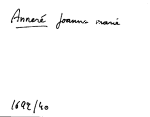 Anneré Joanna Marie
1692/40